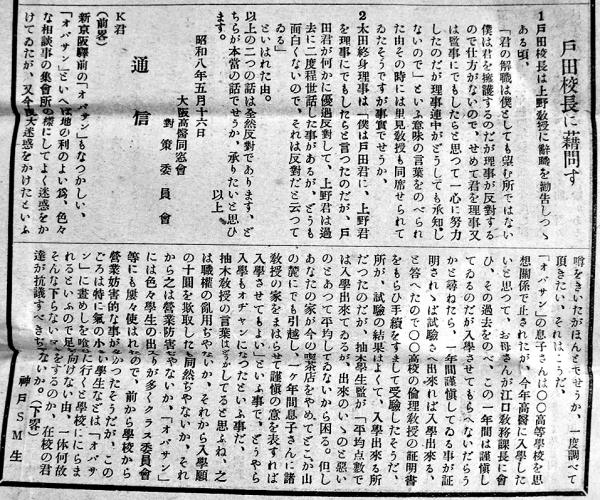 戸田校長に藉問す
1戸田校長は上野教授に辭職を勸告しつゝ
ある頃、
「君の解職は僕としても望む所ではない
僕は君を擁護するのだが理事が反對する
ので仕方がないので、せめて君を理事又
は監事にでもしたらと思つて一心に努力
したのだが理事連中がどうしても承知し
ないので」といふ意味の言葉をのべられ
た由その時には里見教授も同席せられて
ゐたそうですが事實でせうか。
2太田終身理事は「僕は戸田君に、上野君
を理事にでもしたらと言つたのだが、戸
田君が何かに優遇反對して、上野君は過
去に二度程世話した事があるが、どうも
面白くないので、それは反對だと云つて
ゐる」
といはれた由。
以上の二つの話は全然反對であります、ど
ちらが本當の話でせうか、承りたいと思ひ
ます。 以上。
昭和八年五月十六日
大阪高醫同窓會
對策委員會
通信
K君
(前畧)
新京阪驛前の「オバサン」もなつかしい、
「オバサン」といへば地の利のよい爲、色々
な相談事の集會所の樣にしてよく迷惑をか
けてゐたが、又今度大迷惑をかけたといふ
噂をきいたがほんとでせうか、一度調べて
頂きたい、それはこうだ、
「オバサン」の息子さんは〇〇高等學校を思
想關係で止されたが、今年高醫に入學した
いと思つて、お母さんが江口教務課長に會
ひ、その過去をのべ、この一年間は謹愼し
てゐるのだが入學させてもらへないだらう
かと尋ねたら、一年間謹愼してゐる事が證
明されゝば試驗さへ出來れば入學出來る、
と答へたので〇〇高校の倫理教授の證明書
をもらひ手續をすまして受驗したそうだ、
所が、試驗の結果はよくて、入學出來る所
だつたのだが、抽木學生監が「平均點數で
は入學出來てゐるが、出來のいゝのと惡い
のとあつて平均してゐないから困る。但し
あなたの家が今の喫茶店をやめてどこか山
の麓にでも引越し、一ケ年間息子さんに諸
教授の家をまはらせて謹愼の意を表すれば
入學させてもよい」といふ事で、どうやら
入學もオヂヤンになつたといふ事だ、
抽木教授の言葉はどうかしてると思ふね、之
は職權の亂用ぢやないか、それから入學願
の十圓を欺取したも同然ぢやないか、それ
から之は營業妨害ぢやないか、「オバサン」
には色々學生の出入りが多くクラス委員會
等にも屢々使はれたので、前から學校から
營業妨害的な事があつたそうだが、この
ごろは特に氣の小さい學生などは「オバサ
ン」に晝めしを喰ひに行くと學校ににらま
れるといふので足を向けない由、一体何故
そんな下らないマネをするのか、在校の君
達が抗議すべきぢやないか。(下畧)
神戸SM生